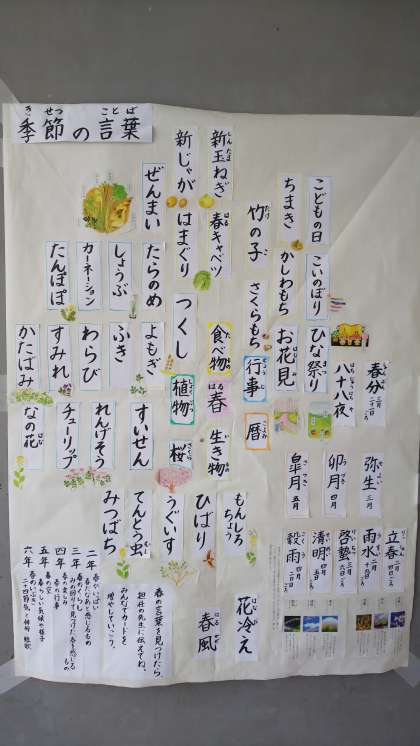 季節の言葉
こどもの日
こいのぼり
ひな祭り
八十八夜
春分
ちまき
かしわもち
お花見
竹の子
さくらもち
行事
暦
新玉ねぎ
春キャベツ
食べ物
春
生き物
新じゃが
はまぐり
つくし
植物
桜
ぜんまい
たらのめ
よもぎ
すいせん
しょうぶ
ふき
れんげそう
カーネーション
わらび
チューリップ
たんぽぽ
すみれ
なの花
かたばみ
弥生 三月
卯月 四月
皐月 五月
立春
雨水
啓蟄
清明
穀雨
もんしろちょう
ひばり
うぐいす
てんとう虫
みつばち
花冷え
春風
春の言葉を見つけたら、
担任の先生に伝えてね。
みんなでカードを
増やしていこう。
二年
三年
四年
五年
六年